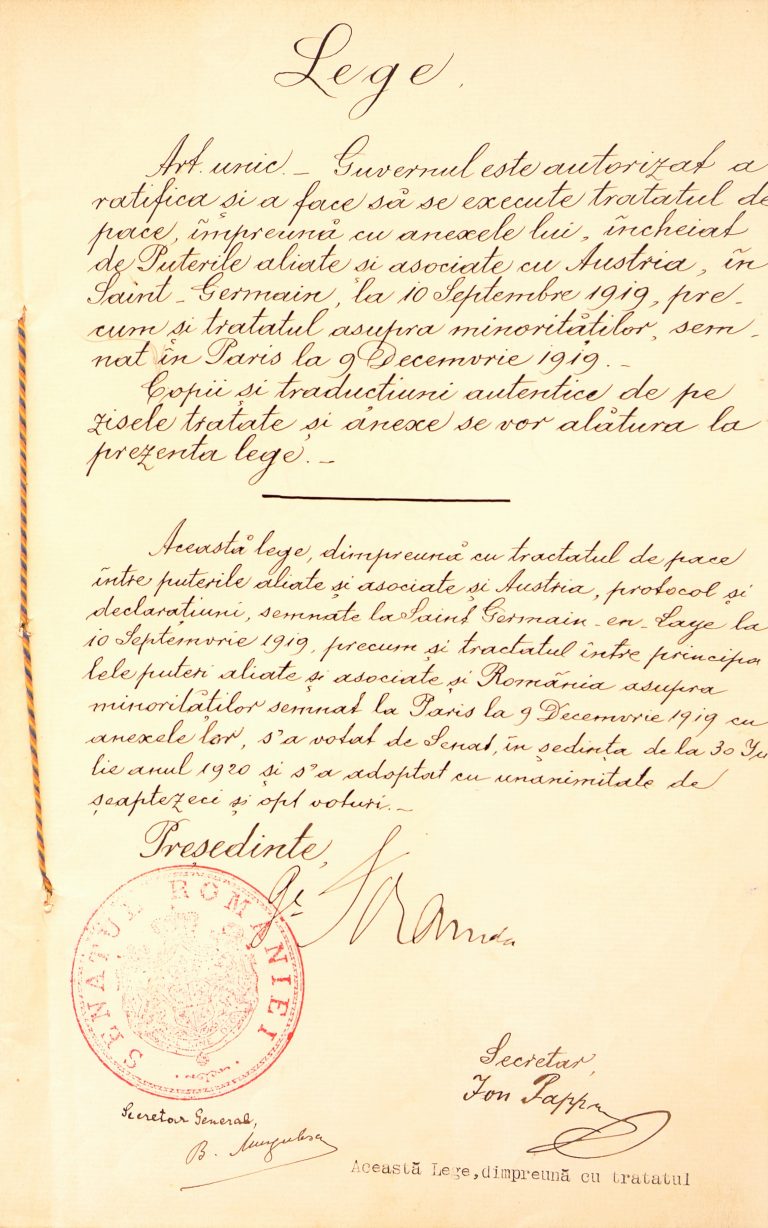 Lege.
Art. unic. — Guvernul este autorizat a
ratifica și a face să se execute tratatul de
pace, împreună cu anexele lui, încheiat
de Puterile aliate si asociate cu Austria, în
Saint-Germain, la 10 Septembre 1919, pre-
cum și tratatul asupra minorităților, sem-
nat în Paris la 9 Decemvrie 1919. —
Copii și traducțiuni autentice de pe
zisele tratate și anexe se vor alătura la
prezenta lege. —
Această lege, dimpreună cu tractatul de pace
între puterile aliate și asociate și Austria, protocol și
declarațiuni, semnate la Saint Germain-en-Laye la
10 Septemvrie 1919, precum și tractatul între principa
lele puteri aliate și asociate și România asupra
minorităților semnat la Paris la 9 Decemvrie 1919 cu
anexele lor, s'a votat de Senat, în ședința de la 30 Iu
lie anul 1920 și s'a adoptat cu unanimitate de
șeaptezeci și opt voturi. —
Președinte,
SENATUL ROMANIEI
Secretar,
Ion Pappa
Secretar General,
B.
Această Lege, dimpreună cu tratatul